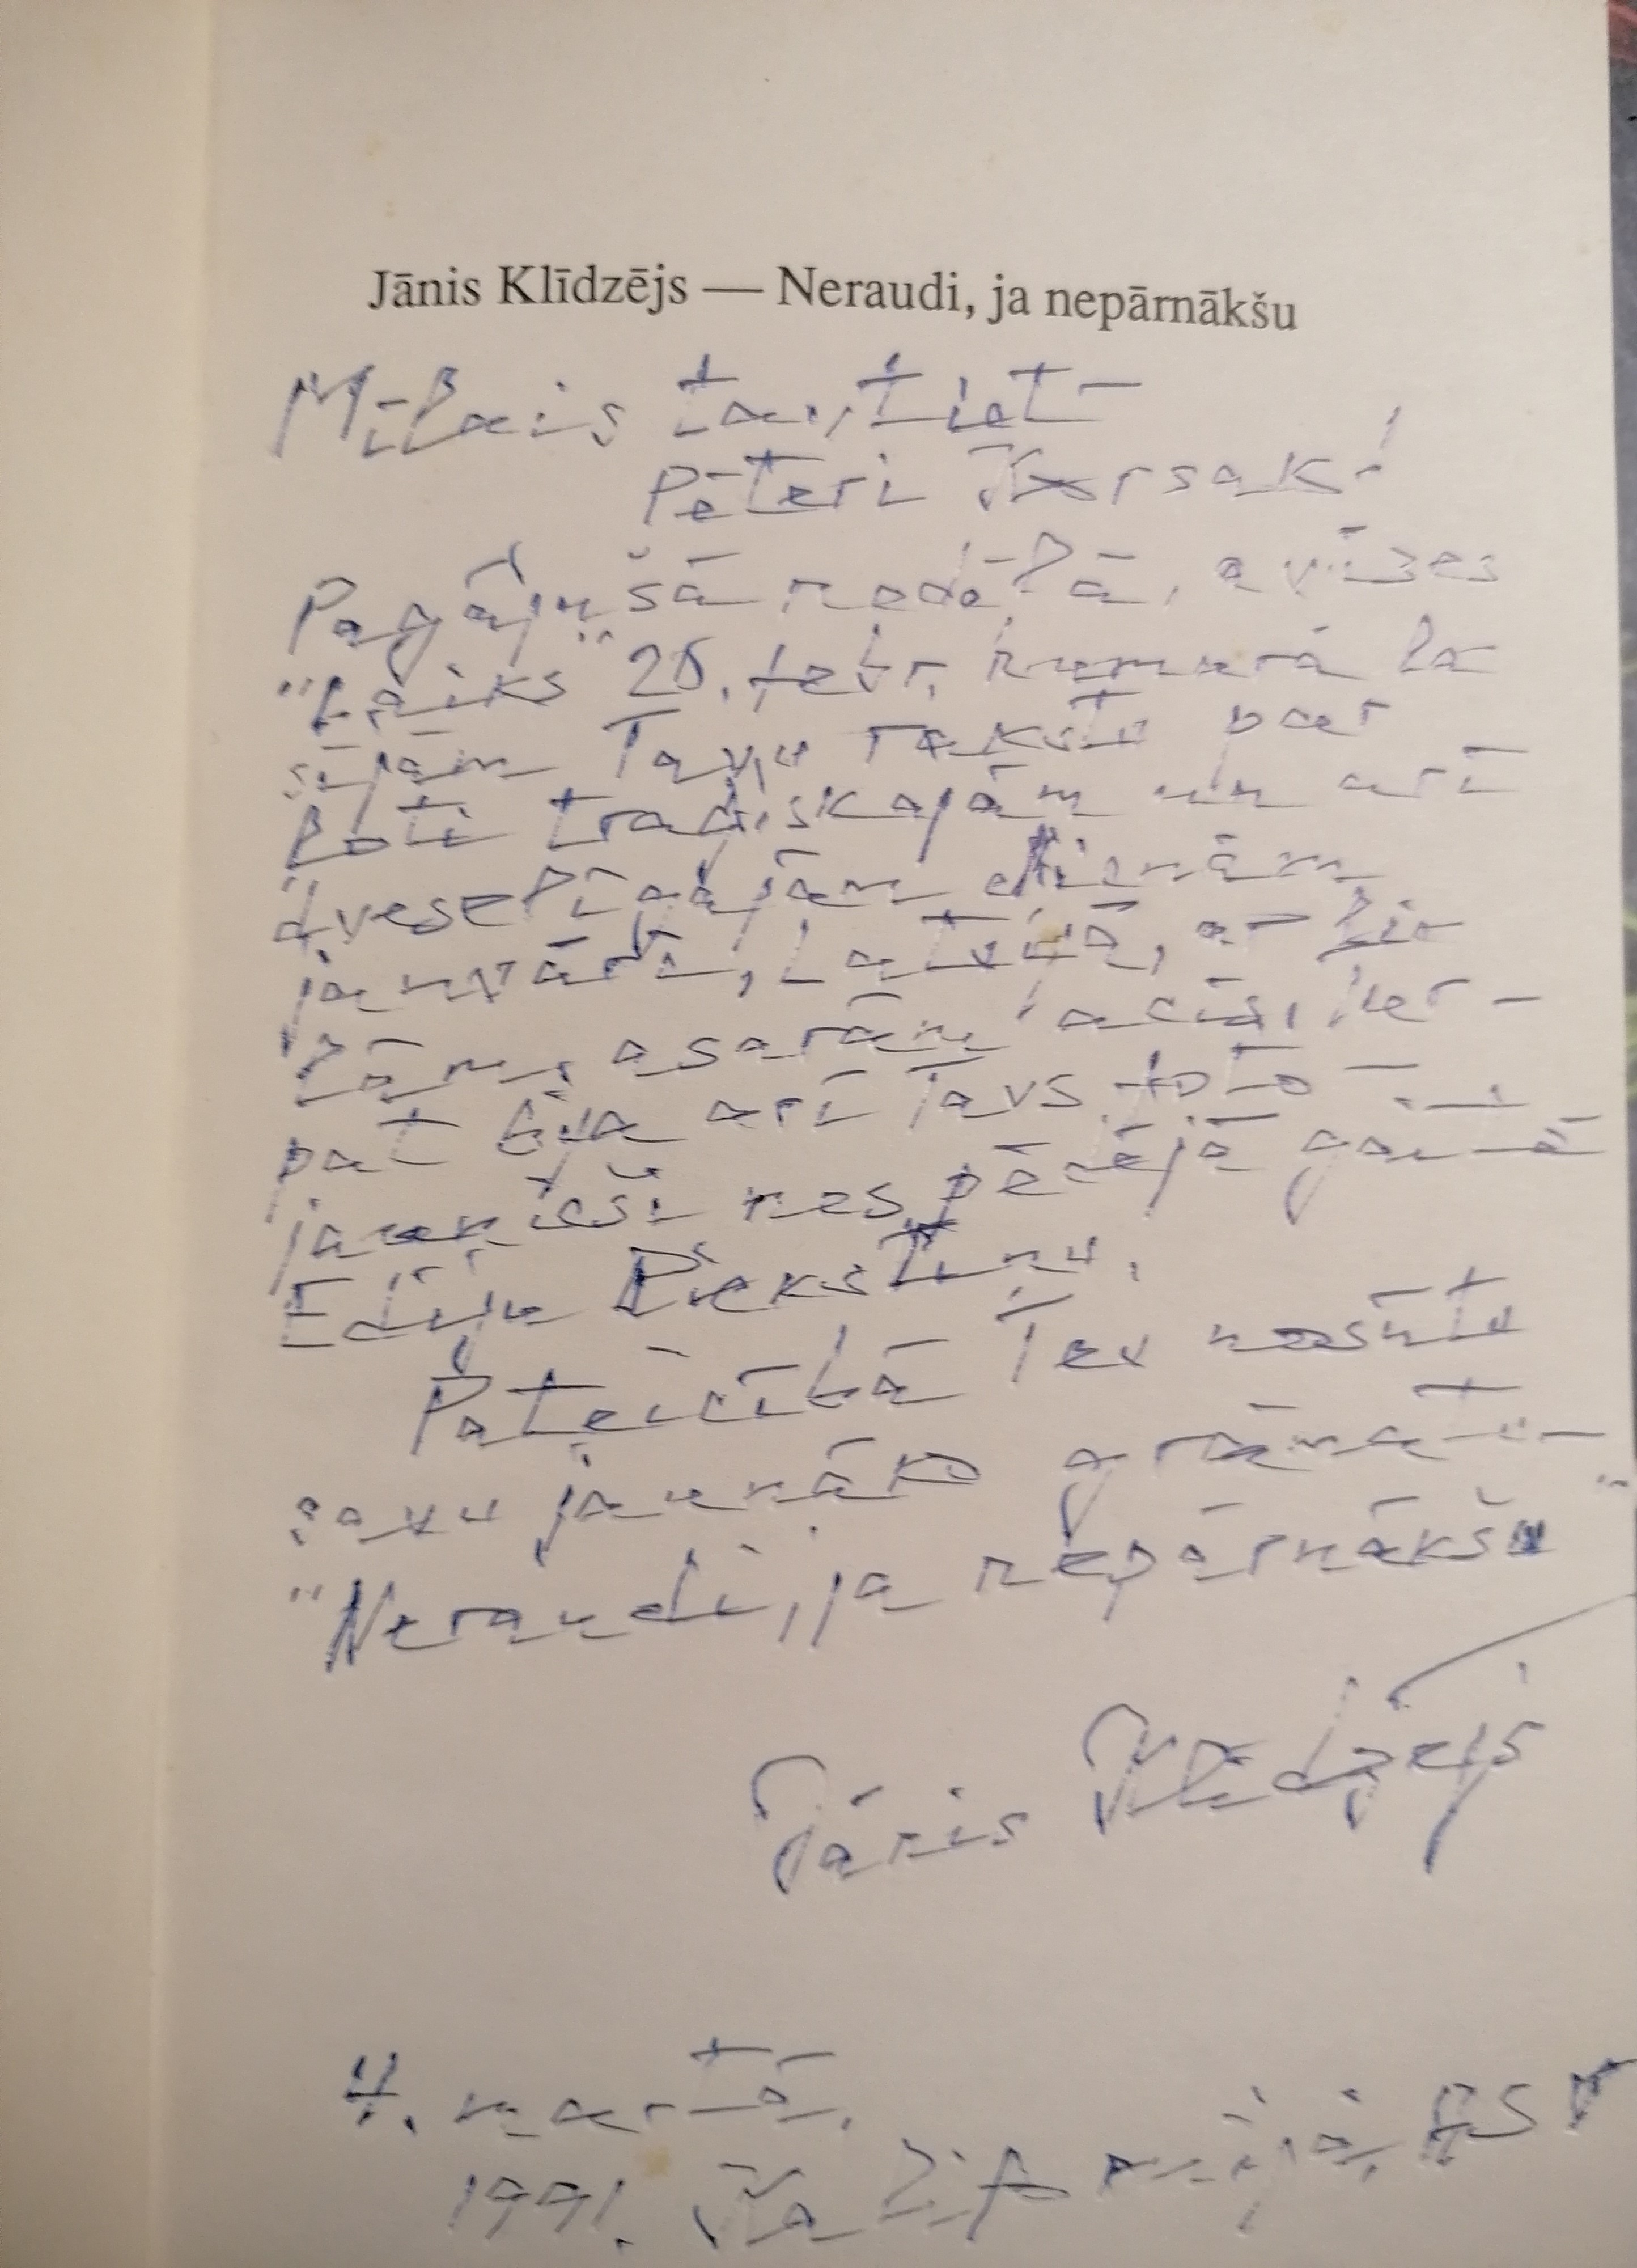 Jānis Klīdzējs — Neraudi, ja nepārnākšu
Mīļais tautiet
Pēteri Korsak!
Pagājušā nedēļā, avīzes
"Laiks" 20. febr. numurā la
sījām Tavu rakstu par
ļoti traģiskajām un arī
dveselīgajām dienām
janvārī, Latvijā, ar lie
lām asarām acīs,
pat bija arī Tavs foto —
jaunieši nes pēdējā gaitā
Ediju Riekstiņu.
Pateicībā Tev nosūtu
savu jaunāko grāmatu —
"Neraudi, ja nepārnākšu"
Jānis Klīdzējs
4. martā.
1991. Kalifornijā, ASV